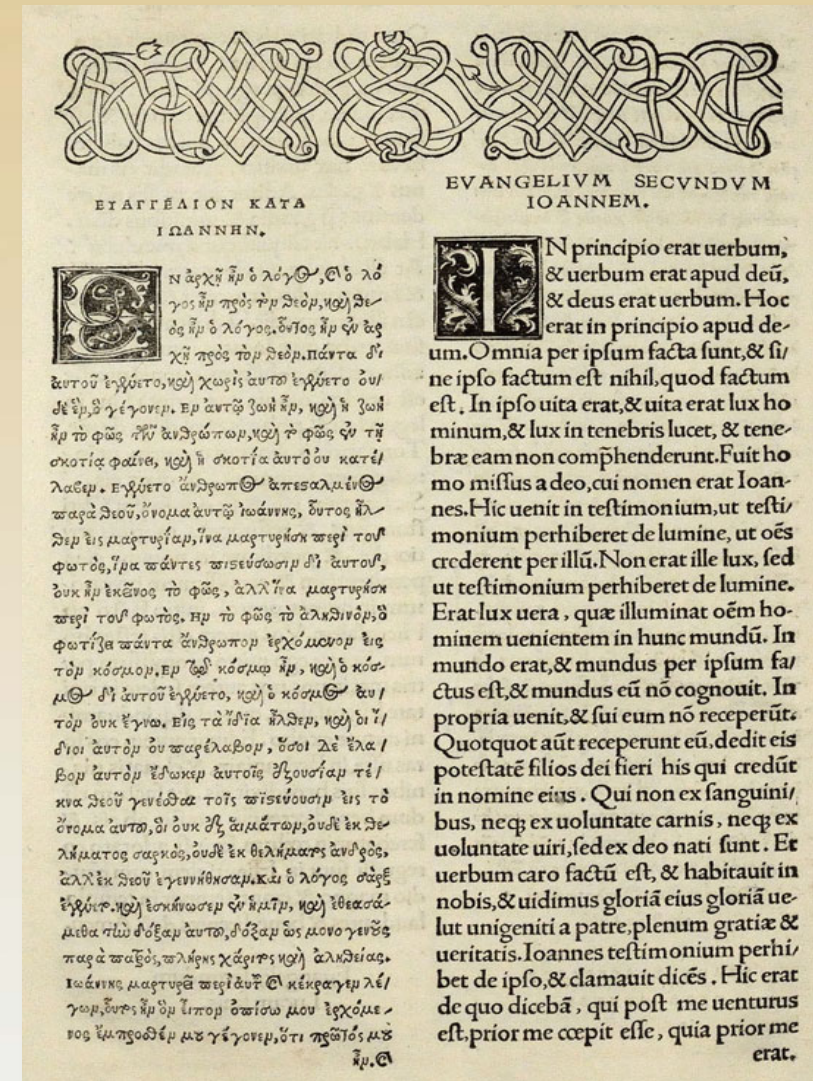 ΕΥΑΓΓΕΛΙΟΝ ΚΑΤΑ
ΙΩΑΝΝΗΝ.
ΕΝ ἀρχῇ ἦν ὁ λόγος, καὶ ὁ λό
γος ἦν πρὸς τὸν θεὸν, καὶ θε-
ὸς ἦν ὁ λόγος. οὗτος ἦν ἐν ἀρ
χῇ πρὸς τὸν θεὸν. πάντα δι'
αυτοῦ ἐγένετο, καὶ χωρὶς αυτοῦ ἐγένετο ου/
δὲ ἓν, ὃ γέγονεν. Εν αυτῷ ζωὴ ἦν, καὶ ἡ ζωὴ
ἦν τὸ φῶς τῶν ἀνθρώπων, καὶ τὸ φῶς ἐν τῇ
σκοτίᾳ φαίνει, καὶ ἡ σκοτία αυτὸ ου κατέ/
λαβεν. Εγένετο ἄνθρωπος ἀπεσταλμένος
παρὰ θεοῦ, ὄνομα αυτῷ ἰωάννης, οὗτος ἦλ-
θεν εἰς μαρτυρίαν, ἵνα μαρτυρήσῃ περὶ τοῦ
φωτὸς, ἵνα πάντες πιστεύσωσιν δι' αυτοῦ,
ουκ ἦν ἐκεῖνος τὸ φῶς, ἀλλ' ἵνα μαρτυρήσῃ
περὶ τοῦ φωτὸς. Ην τὸ φῶς τὸ ἀληθινὸν, ὃ
φωτίζει πάντα ἄνθρωπον ἐρχόμενον εἰς
τὸν κόσμον. Εν τῷ κόσμῳ ἦν, καὶ ὁ κόσ-
μος δι' αυτοῦ ἐγένετο, καὶ ὁ κόσμος αυ/
τὸν ουκ ἔγνω. Εἰς τὰ ἴδια ἦλθεν, καὶ ὁι ἴ/
διοι αυτὸν ου παρέλαβον, ὅσοι δὲ ἔλα/
βον αυτὸν ἔδωκεν αυτοῖς ἐξουσίαν τέ/
κνα θεοῦ γενέσθαι τοῖς πιστεύουσιν εἰς τὸ
ὄνομα αυτοῦ, ὁι ουκ ἐξ ἁιμάτων, ουδὲ ἐκ θε-
λήματος σαρκὸς, ουδὲ ἐκ θελήματος ανδρὸς,
ἀλλ' ἐκ θεοῦ εγεννήθησαν. Και ὁ λόγος σὰρξ
ἐγένετο. καὶ ἐσκήνωσεν ἐν ἡμῖν, καὶ ἐθεασά-
μεθα τὴν δόξαν αυτοῦ, δόξαν ὡς μονογενοῦς
παρὰ πατρὸς, πλήρης χάριτος καὶ ἀληθείας.
Ιωάννης μαρτυρεῖ περὶ αυτοῦ καὶ κέκραγεν λέ/
γων, οὗτος ἦν ὃν ἐιπον ὀπίσω μου ἐρχόμε-
νος ἔμπροσθέν μου γέγονεν, ὅτι πρῶτός μου
ἦν. καὶ
EVANGELIVM SECVNDVM
IOANNEM.
IN principio erat uerbum,
& uerbum erat apud deū,
& deus erat uerbum. Hoc
erat in principio apud de-
um. Omnia per ipsum facta sunt, & si/
ne ipso factum est nihil, quod factum
est. In ipso uita erat, & uita erat lux ho
minum, & lux in tenebris lucet, & tene-
bræ eam non comp̄henderunt. Fuit ho
mo missus a deo, cui nomen erat Ioan-
nes. Hic uenit in testimonium, ut testi/
monium perhiberet de lumine, ut oēs
crederent per illū. Non erat ille lux, sed
ut testimonium perhiberet de lumine.
Erat lux uera, quæ illuminat oēm ho-
minem uenientem in hunc mundū. In
mundo erat, & mundus per ipsum fa/
ctus est, & mundus eū nō cognouit. In
propria uenit, & sui eum nō receperūt.
Quotquot aūt receperunt eū, dedit eis
potestatē filios dei fieri his qui credūt
in nomine eius. Qui non ex sanguini/
bus, neqꝫ ex uoluntate carnis, neqꝫ ex
uoluntate uiri, sed ex deo nati sunt. Et
uerbum caro factū est, & habitauit in
nobis, & uidimus gloriā eius gloriā ue-
lut unigeniti a patre, plenum gratiæ &
ueritatis. Ioannes testimonium perhi/
bet de ipso, & clamauit dicēs. Hic erat
de quo dicebā, qui post me uenturus
est, prior me cœpit esse, quia prior me
erat.